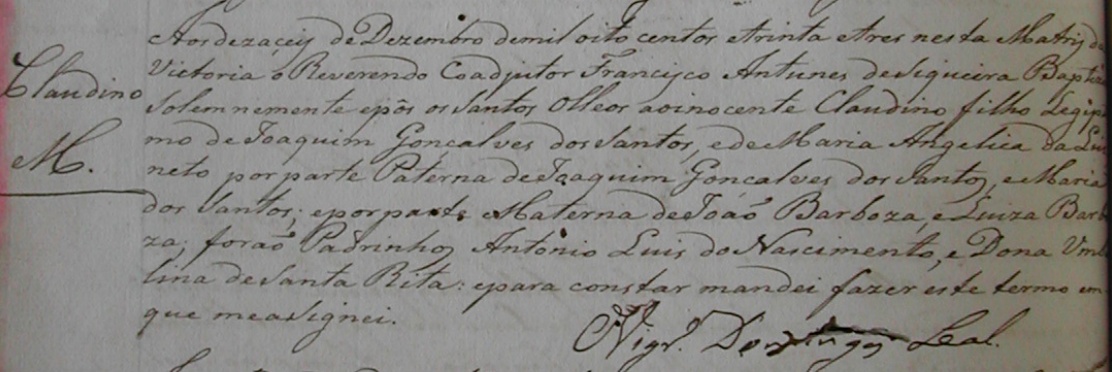 Aos dezaçeis de Dezembro de mil oito centos e trinta e tres nesta Matris da
Victoria o Reverendo Coadjutor Francisco Antunes de Siqueira Baptizou
Claudino
Solemnemente e pôs os Santos Olleos ao inocente Claudino filho Legiti
M.
mo de Joaquim Goncalves dos Santos, e de Maria Angelica da Luz
neto por parte Paterna de Joaquim Goncalves dos Santos, e Maria
dos Santos; e por parte Materna de Joaõ Barboza, e Luiza Barbo
za; foraõ Padrinhos Antonio Luis do Nascimento, e Dona Umb
lina de Santa Rita: e para constar mandei fazer este termo em
que me asignei.
Vigr.º Domingos Leal.